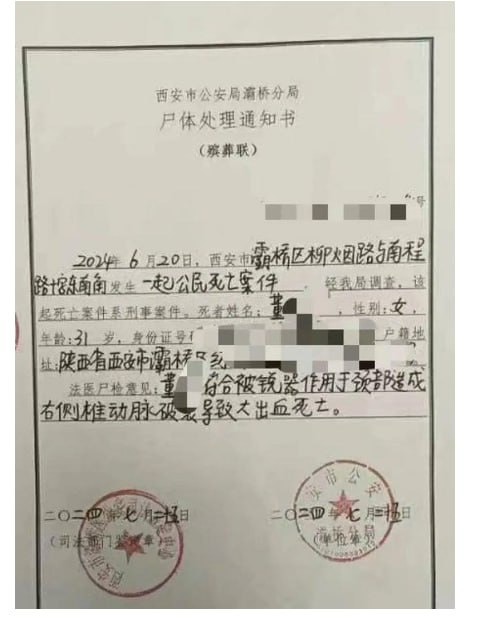 西安市公安局灞桥分局
尸体处理通知书
（殡葬联）
号
2024年6月20日，西安市灞桥区柳烟路与南程
路十字东南角发生一起公民死亡案件 经我局调查，该
起死亡案件系刑事案件。死者姓名：董 ，性别：女，
年龄：31岁，身份证号 户籍地
址：陕西省西安市灞桥区
法医尸检意见：董 符合被锐器作用于颈部造成
右侧椎动脉破裂导致大出血死亡。
二〇二四年七月二十五日 二〇二四年七月二十五日
（司法部门 章） （单位章）
西安市公安
灞桥分局